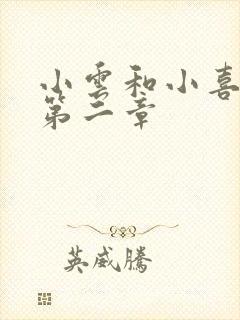 小雲和小喜
第二章
英威騰